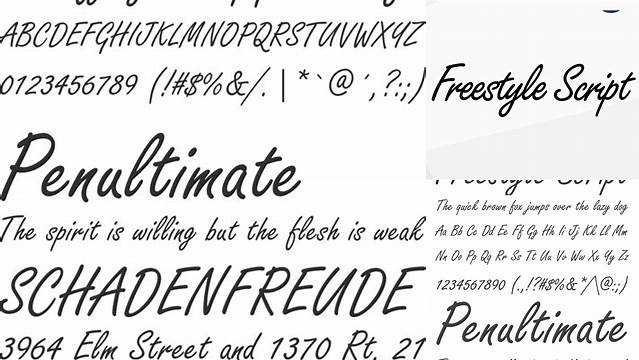 ABCDEFGHIJKLMNOPQRSTUVWXYZ
0123456789 (!#$%&/. | *`@´,?:;)
Penultimate
The spirit is willing but the flesh is weak
SCHADENFREUDE
3964 Elm Street and 1370 Rt. 21
Freestyle Script
Freestyle Script
The quick brown fox jumps over the lazy dog
Aa Bb Cc Dd Ee Ff Gg Hh Ii Jj Kk Ll Mm
Nn Oo Pp Qq Rr Ss Tt Uu Vv Ww Xx Yy Zz
1234567890 (.,!?#$%&*/\@:;)
Penultimate